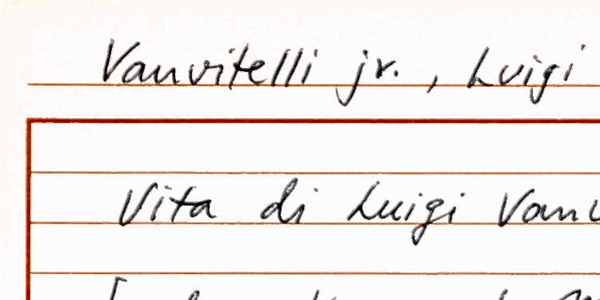 Vanvitelli jr., Luigi
Vita di Luigi Vanv